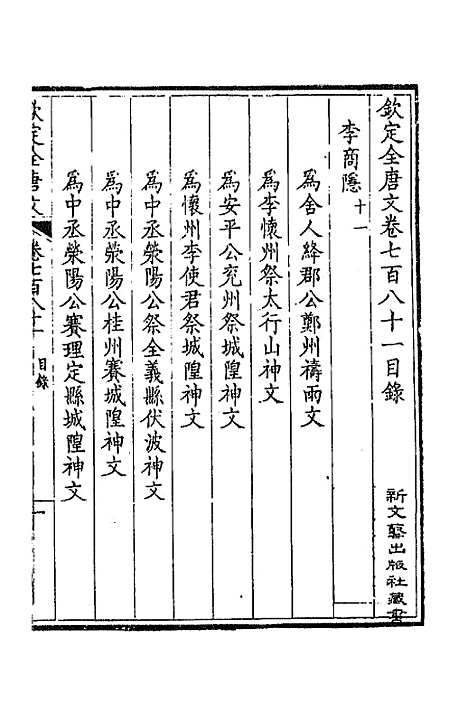 欽定全唐文卷七百八十一目錄
李商隱十一
爲舍人絳郡公鄭州禱雨文
爲李懷州祭太行山神文
爲安平公兖州祭城隍神文
爲懷州李使君祭城隍神文
爲中丞滎陽公祭全義縣伏波神文
爲中丞滎陽公桂州賽城隍神文
爲中丞滎陽公賽理定縣城隍神文
欽定全唐文
卷七百八十一
目錄
一
新文藝出版社藏書